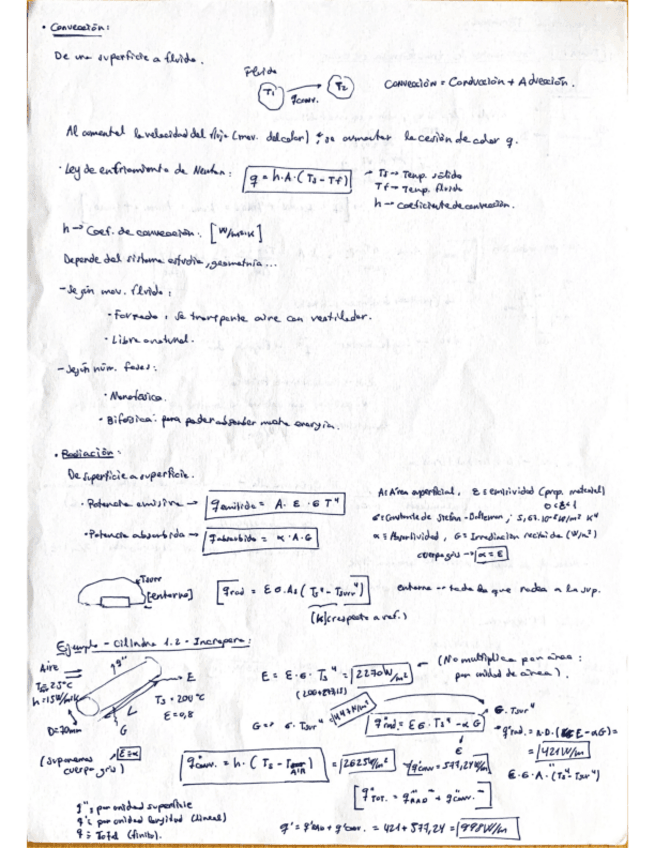 · Convección:
De una superficie a fluido.
Fluido
T1 → T2
qconv.
Convección = Conducción + Advección.
Al aumentar la velocidad del flujo (mov. del calor), va aumentar la cesión de calor q.
· Ley de enfriamiento de Newton: q = h·A·(Ts - Tf)
Ts → Temp. sólido
Tf → Temp. fluido
h → coeficiente de convección.
h → Coef. de convección: [W/m²·K]
Depende del sistema estudio, geometría...
- Según mov. fluido:
· Forzado: se transporte aire con ventilador.
· Libre o natural.
- Según núm. fases:
· Monofásica.
· Bifásica: para poder absorber mucha energía.
· Radiación:
De superficie a superficie.
· Potencia emisiva → qemitido = A· ε · σ T⁴
· Potencia absorbida → qabsorbido = α·A·G
A: Área superficial, ε: emisividad (prop. material)
0<ε<1
σ: Constante de Stefan-Boltzman, 5,67·10⁻⁸ W/m² K⁴
α: Absortividad, G: Irradiación recibida (W/m²)
cuerpo gris → α = ε
Tsurr
[entorno]
qrad = εσ·As (Ts⁴ - Tsurr⁴)
[K] (respecto a ref.)
entorno → todo lo que rodea a la sup.
Ejemplo - Cilindro 1.2 - Incropera:
Aire
T∞ 25°C
h=15W/m²K
D=70mm
q"
E
L
G
Ts = 200°C
ε=0,8
(suponemos cuerpo gris)
ε=α
E = ε·σ·Ts⁴ = 2270 W/m²
(200+273,15)
(No multiplica por área: por unidad de área).
G = σ·Tsurr⁴ = 447 W/m²
q"rad = εσ·Ts⁴ - αG
σ·Tsurr⁴
q'rad = π·D·(E - αG) =
= 421 W/m
q"conv. = h·(Ts - Taire) = 2625 W/m²
q'conv = 577,24 W/m
ε·σ·A·(Ts⁴ - Tsurr⁴)
q"TOT. = q"RAD + q"conv.
q": por unidad superficie
q': por unidad longitud (lineal)
q: Total (finito).
q' = q'RAD + q'conv. = 421 + 577,24 = 998 W/m